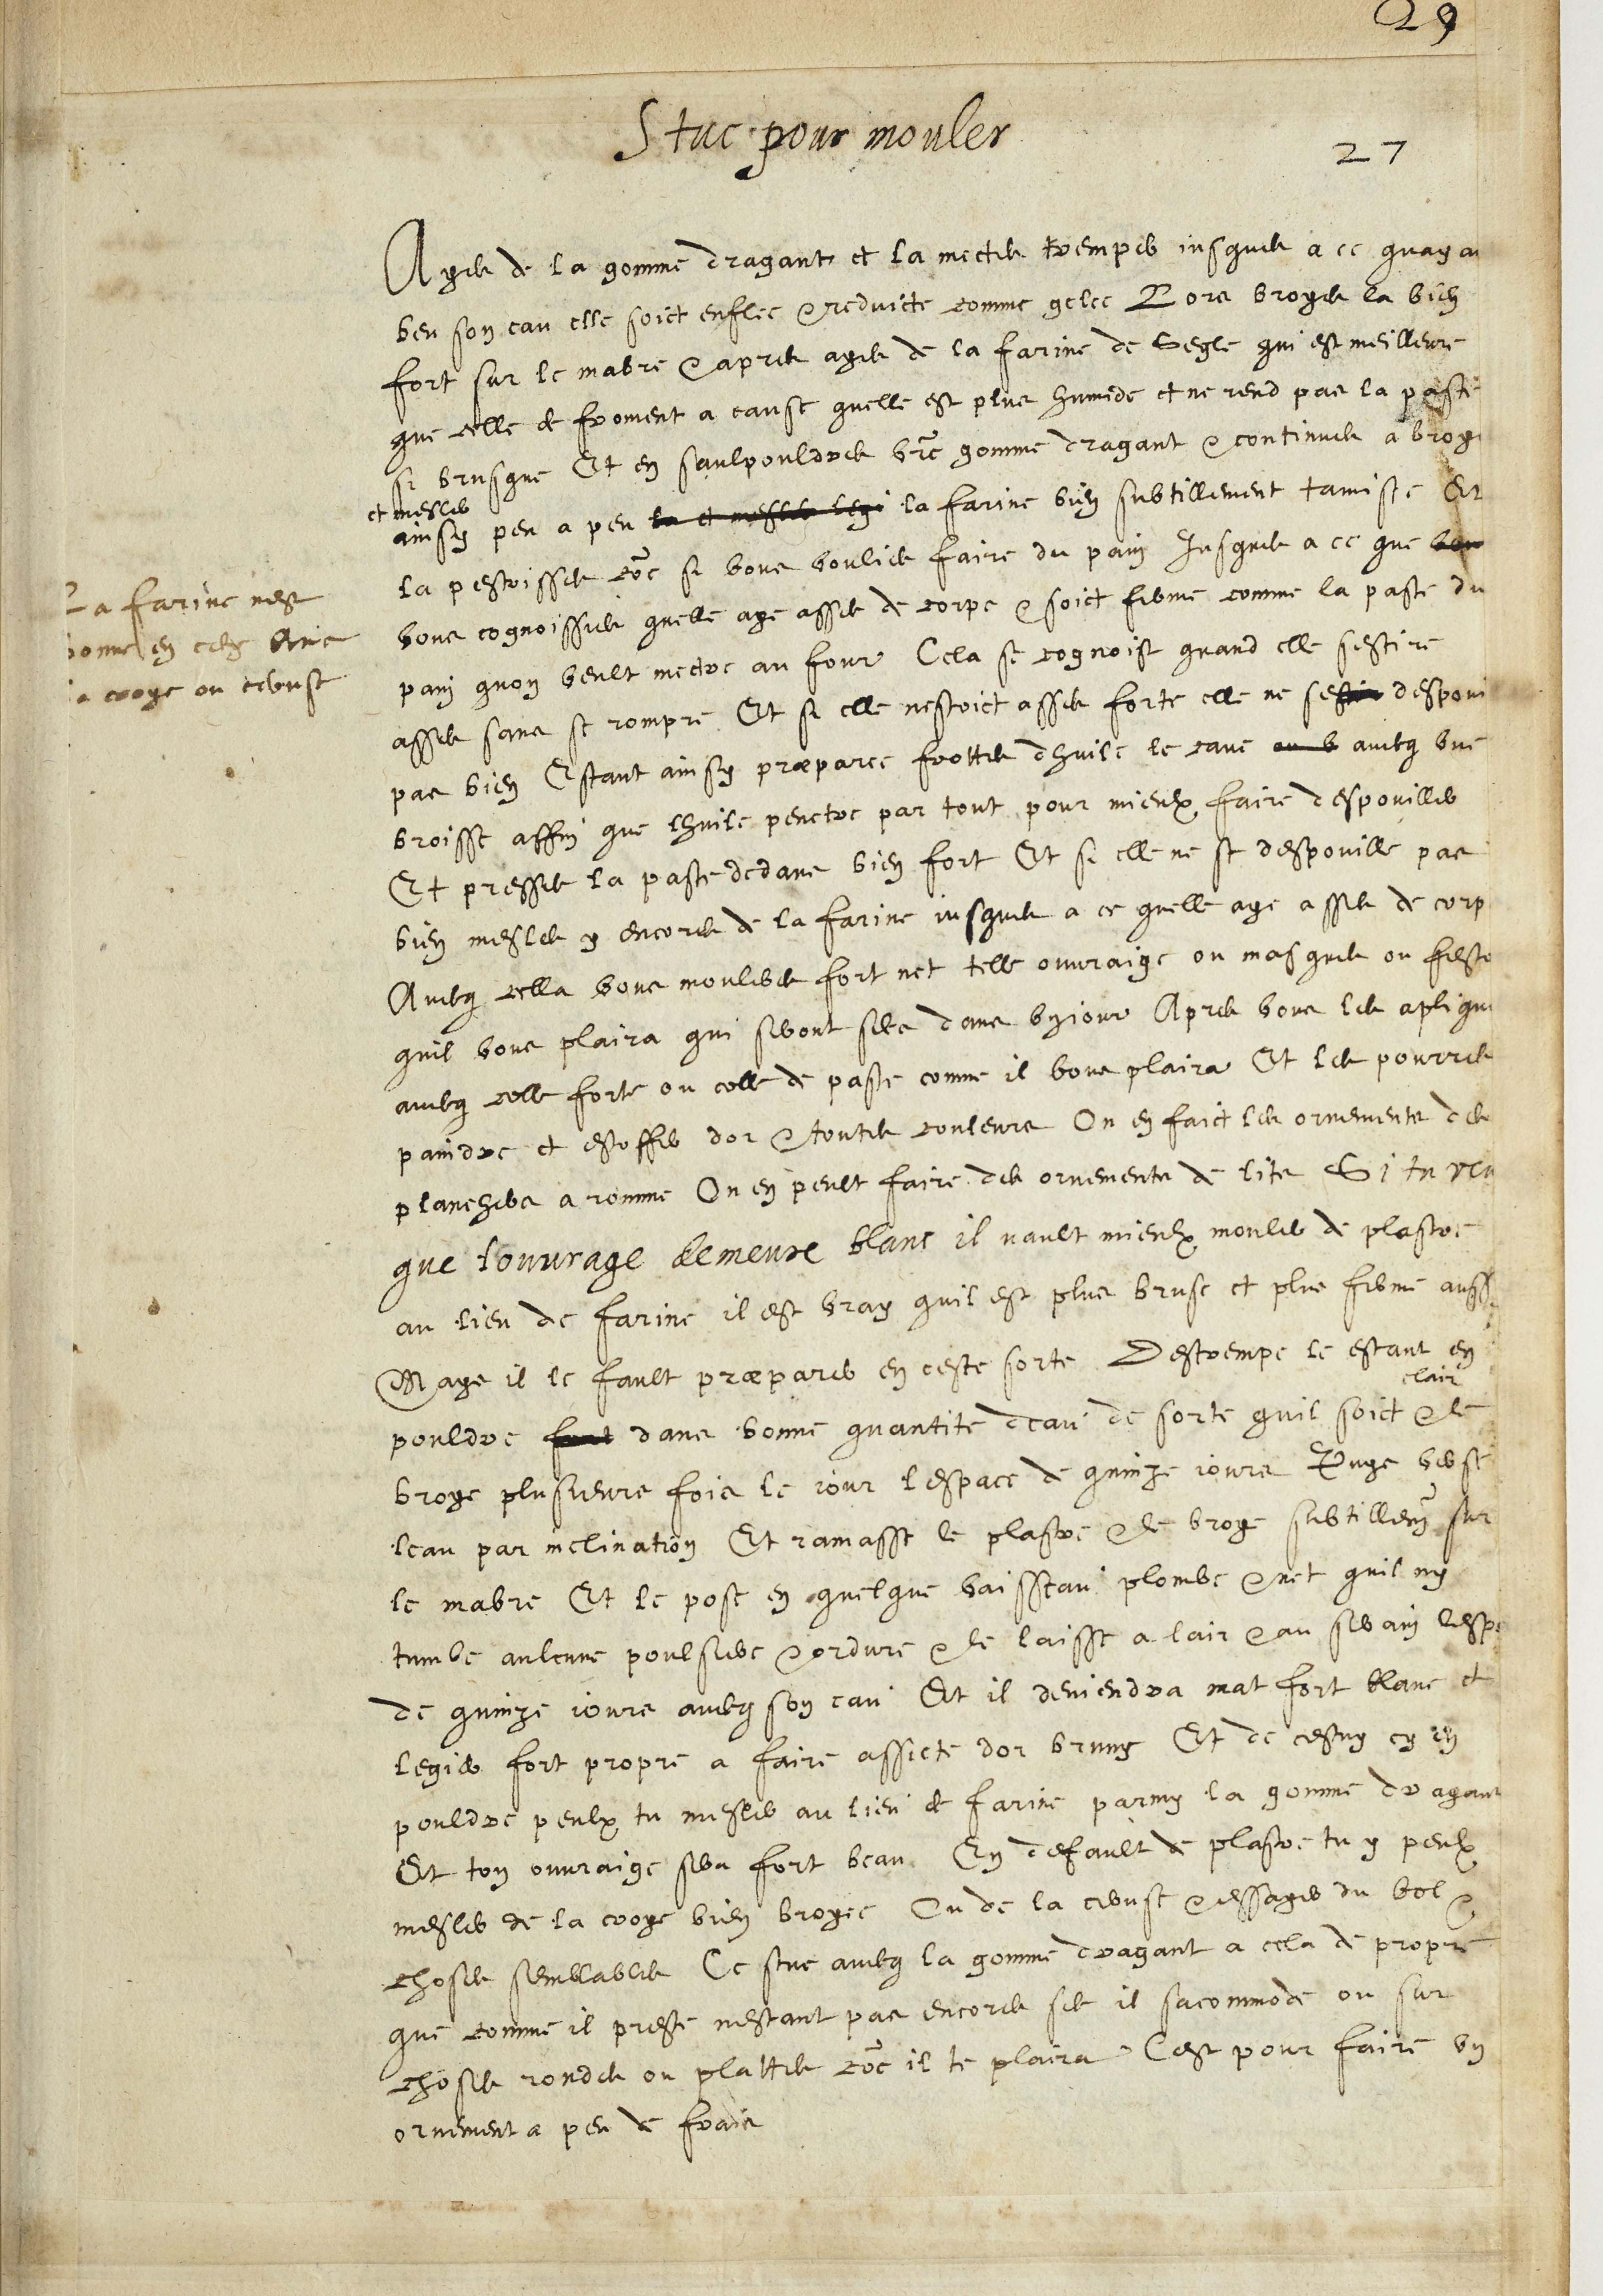 29
Stuc pour mouler
27
Ayes de la gomme dragant et la mectes tremper jusques a ce quay a
beu son eau elle soict enflee & reduicte comme gelee Lors broyes la bien
fort sur le mabre & apres ayes de la farine de segle qui est meilleure
que celle de froment a cause quelle est plus humide et ne rend pas la paste
si brusque Et en saulpouldres vre gomme dragant & continues a broye
et mesler
ainsy peu a peu la et mesler la farine bien subtillement tamisee Et
la pestrisses coe si vous voulies faire du pain Jusques a ce que vou
vous cognoissies quelle aye asses de corps & soict ferme comme la paste du
pain quon veult mectre au four Cela se cognoist quand elle sestire
asses sans se rompre Et si elle nestoict asses forte elle ne se despoui
pas bien Estant ainsy præparee frottes dhuile le cave avecq une
broisse affin que lhuile penetre par tout pour mieulx faire despouiller
Et presses la paste dedans bien fort Et si elle ne se despouille pas
bien mesles y encores de la farine jusques a ce quelle aye asses de corp
Avecq cella vous moulerés fort net telle ouvraige ou masques ou festo
quil vous plaira qui seront secs dans un jour Apres vous les aplique
avecq colle forte ou colle de paste comme il vous plaira Et les pourres
paindre et estoffer dor & toutes couleurs On en faict les ornements des
planchers a romme On en peult faire des ornements de lits Si tu veu
que l'ouvrage demeure blanc il vault mieulx mouler de plastre
au lieu de farine il est vray quil est plus brusc et plus ferme aussi
Mays il le fault præparer en ceste sorte Destrempe le estant en
clair
pouldre fort dans bonne quantite deau de sorte quil soict & le
broye plusieurs fois le jour lespace de quinze jours Puys verse
leau par inclination Et ramasse le plastre & le broye subtillem sur
le mabre Et le pose en quelque vaisseau plombe & net quil ny
tumbe aulcune poulsiere & ordure & le laisse a lair & au serain lesp
de quinze jours avecq son eau Et il deviendra mat fort blanc et
legier fort propre a faire assiete dor bruny Et de cestuy cy en
pouldre peulx tu mesler au lieu de farine parmy la gomme dragant
Et ton ouvraige sera fort beau En default de plastre tu y peulx
mesler de la croye bien broyee Ou de la ceruse & essayer du bol &
choses semblables Ce stuc avecq la gomme dragant a cela de propre
que comme il preste nestant pas encores sec il sacommode ou sur
choses rondes ou plattes coe il te plaira Cest pour faire un
ornement a peu de frais
La farine nest
bonne en cecy Mais
la croye ou ceruse